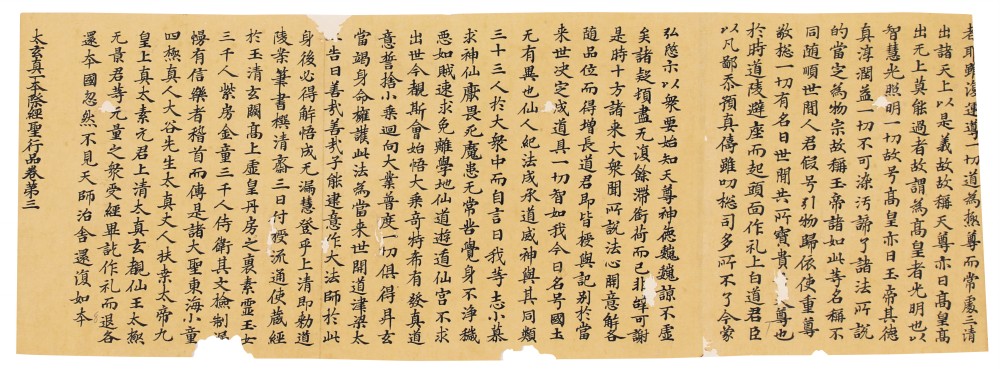 老耶顯復運導一切道為極尊而常處三清
出諸天上以是義故故稱天尊亦曰高皇高
出无上莫能過者故謂為高皇者光明也以
智慧光照明一切故号高皇亦曰玉帝其德
真淳潤益一切不可染污諦了諸法所說
的當定為物宗故稱玉帝諸如此等名稱不
同随順世間人君假号引物歸依使重尊
敬捴一切有名日世間共所寶貴 尊也
於時道陵避座而起頭面作礼上白道君臣
以凡鄙忝預真儔雖叨捴司多所不了今蒙
弘慜示以衆要始知天尊神德巍巍諒不虛
矣諸疑頓盡无復餘滯銜荷而已非 可謝
是時十方諸来大衆聞所說法心開意解各
随品位而得增長道君即皆授與記別於當
来世決定成道具一切智如我今日名号國土
无有異也仙人紀法成承道威神與其同類
三十三人於大衆中而自言曰我等志小慕
求神仙猒畏死魔患无常呰覺身不淨穢
惡如賊速求免離學地仙道遊道仙宫不求
出世今覩斯會始悟大乗奇特希有發真道
意誓捨小乗迴向大業普度一切俱得昇玄
當竭身命擁護此法為當来世開道津梁太
告曰善哉善哉子能建意作大法師於此
身後必得解悟成无漏慧登乎上清即勅道
陵案筆書撰清齋三日付授流通使蔵經
於玉清玄闕高上虛皇丹房之裏素靈玉女
三千人紫房金童三千人侍衛其文檢制
慢有信樂者稽首而傳是諸大聖東海小童
四極真人大谷先生太真丈人扶桒太帝九
皇上真太素元君上清太真玄覩仙王太極
无景君等无量之衆受經畢訖作礼而退各
還本國忽然不見天師治舍還復如本
太玄真一本際經聖行品卷第三